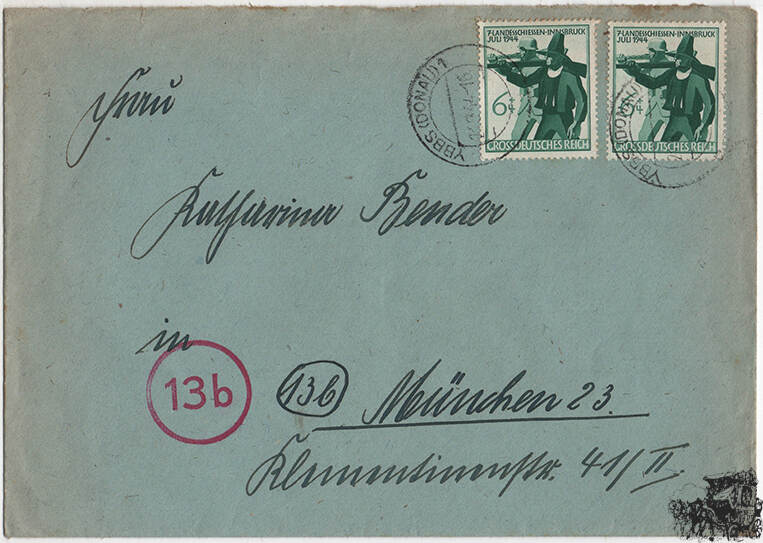 YBBS (DONAU) 1
7. LANDESSCHIESSEN-INNSBRUCK
JULI 1944
6+
GROSSDEUTSCHES REICH
7. LANDESSCHIESSEN-INNSBRUCK
JULI 1944
GROSSDEUTSCHES REICH
YBBS (DONAU)
Frau
Katharina Bender
in
13b
13b
München 23.
Klementinenstr. 41/II.